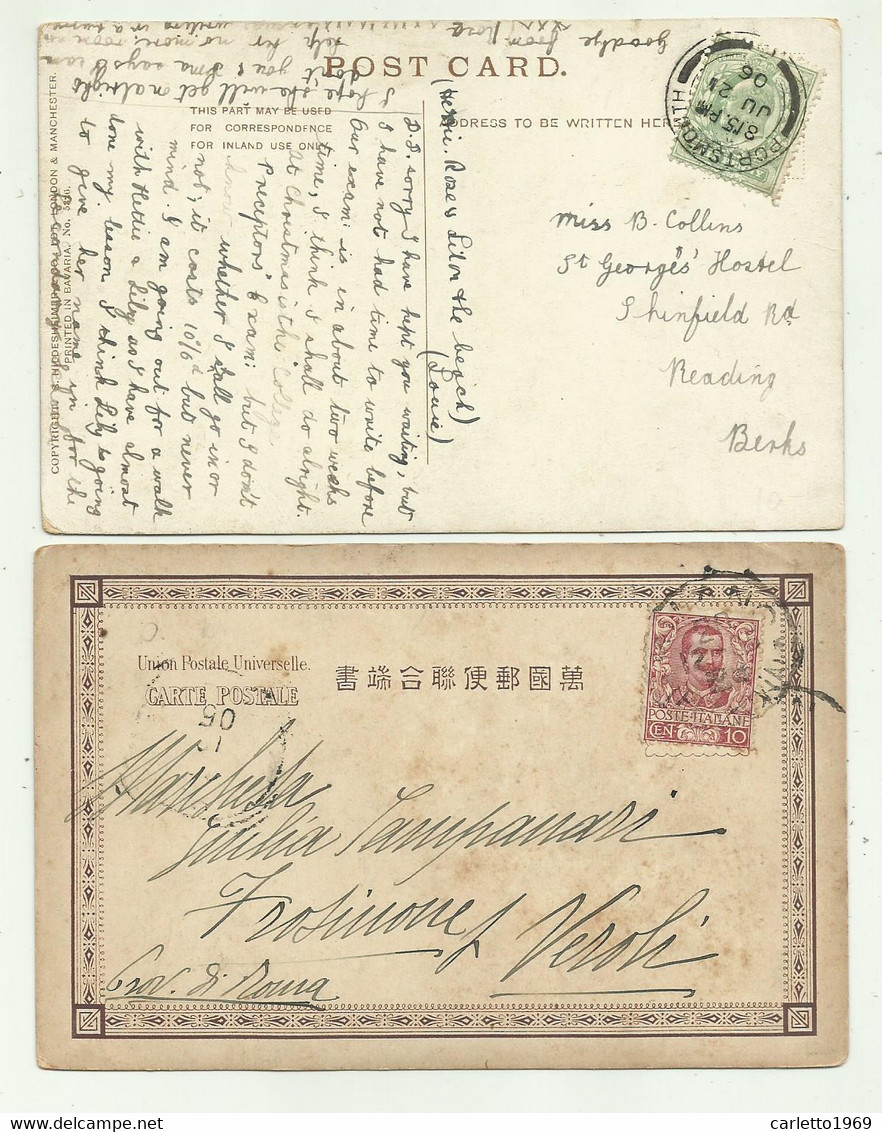 Goodbye from Rosa
help her no more; room on
don't you & Ema says I can
I hope she will get on alright
POST CARD.
THIS PART MAY BE USED
FOR CORRESPONDENCE
FOR INLAND USE ONLY
ADDRESS TO BE WRITTEN HERE
COPYRIGHT HILDESHEIMER & CO. LTD. LONDON & MANCHESTER.
PRINTED IN BAVARIA. No. 5236.
D.B. sorry I have kept you waiting, but
I have not had time to write before
Our exam: is in about two weeks
time, I think I shall do alright.
At Christmas is the College
Preceptors' Exam: but I don't
know whether I shall go in or
not; it costs 10/6d but never
mind. I am going out for a walk
with Hettie & Lily as I have almost
done my lesson I think Lily is going
to give her name in for the
(Hettie. Rose & Lil on the beach)
(Louie)
PORTSMOUTH
8.15 PM
JU 21
06
Miss B. Collins
St Georges' Hostel
Shinfield Rd
Reading
Berks
Union Postale Universelle.
CARTE POSTALE
萬國郵便聯合端書
POSTE ITALIANE
CEN 10
05
Marchesa
Giulia Campanari
Frosinone
Veroli
Prov. di Roma
carletto1969